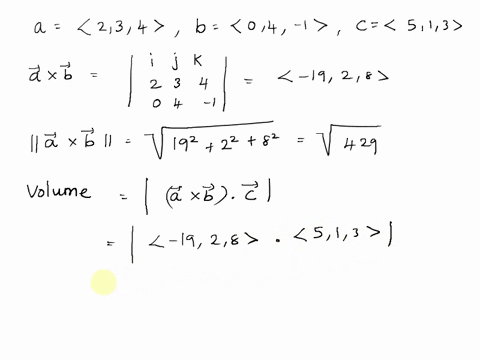 a = < 2, 3, 4 > , b = < 0, 4, -1 > , c = < 5, 1, 3 >
i j k
a⃗ × b⃗ = | 2 3 4 | = < -19, 2, 8 >
0 4 -1
|| a⃗ × b⃗ || = √(19² + 2² + 8²) = √429
Volume = | (a⃗ × b⃗) . c⃗ |
= | < -19, 2, 8 > . < 5, 1, 3 > |